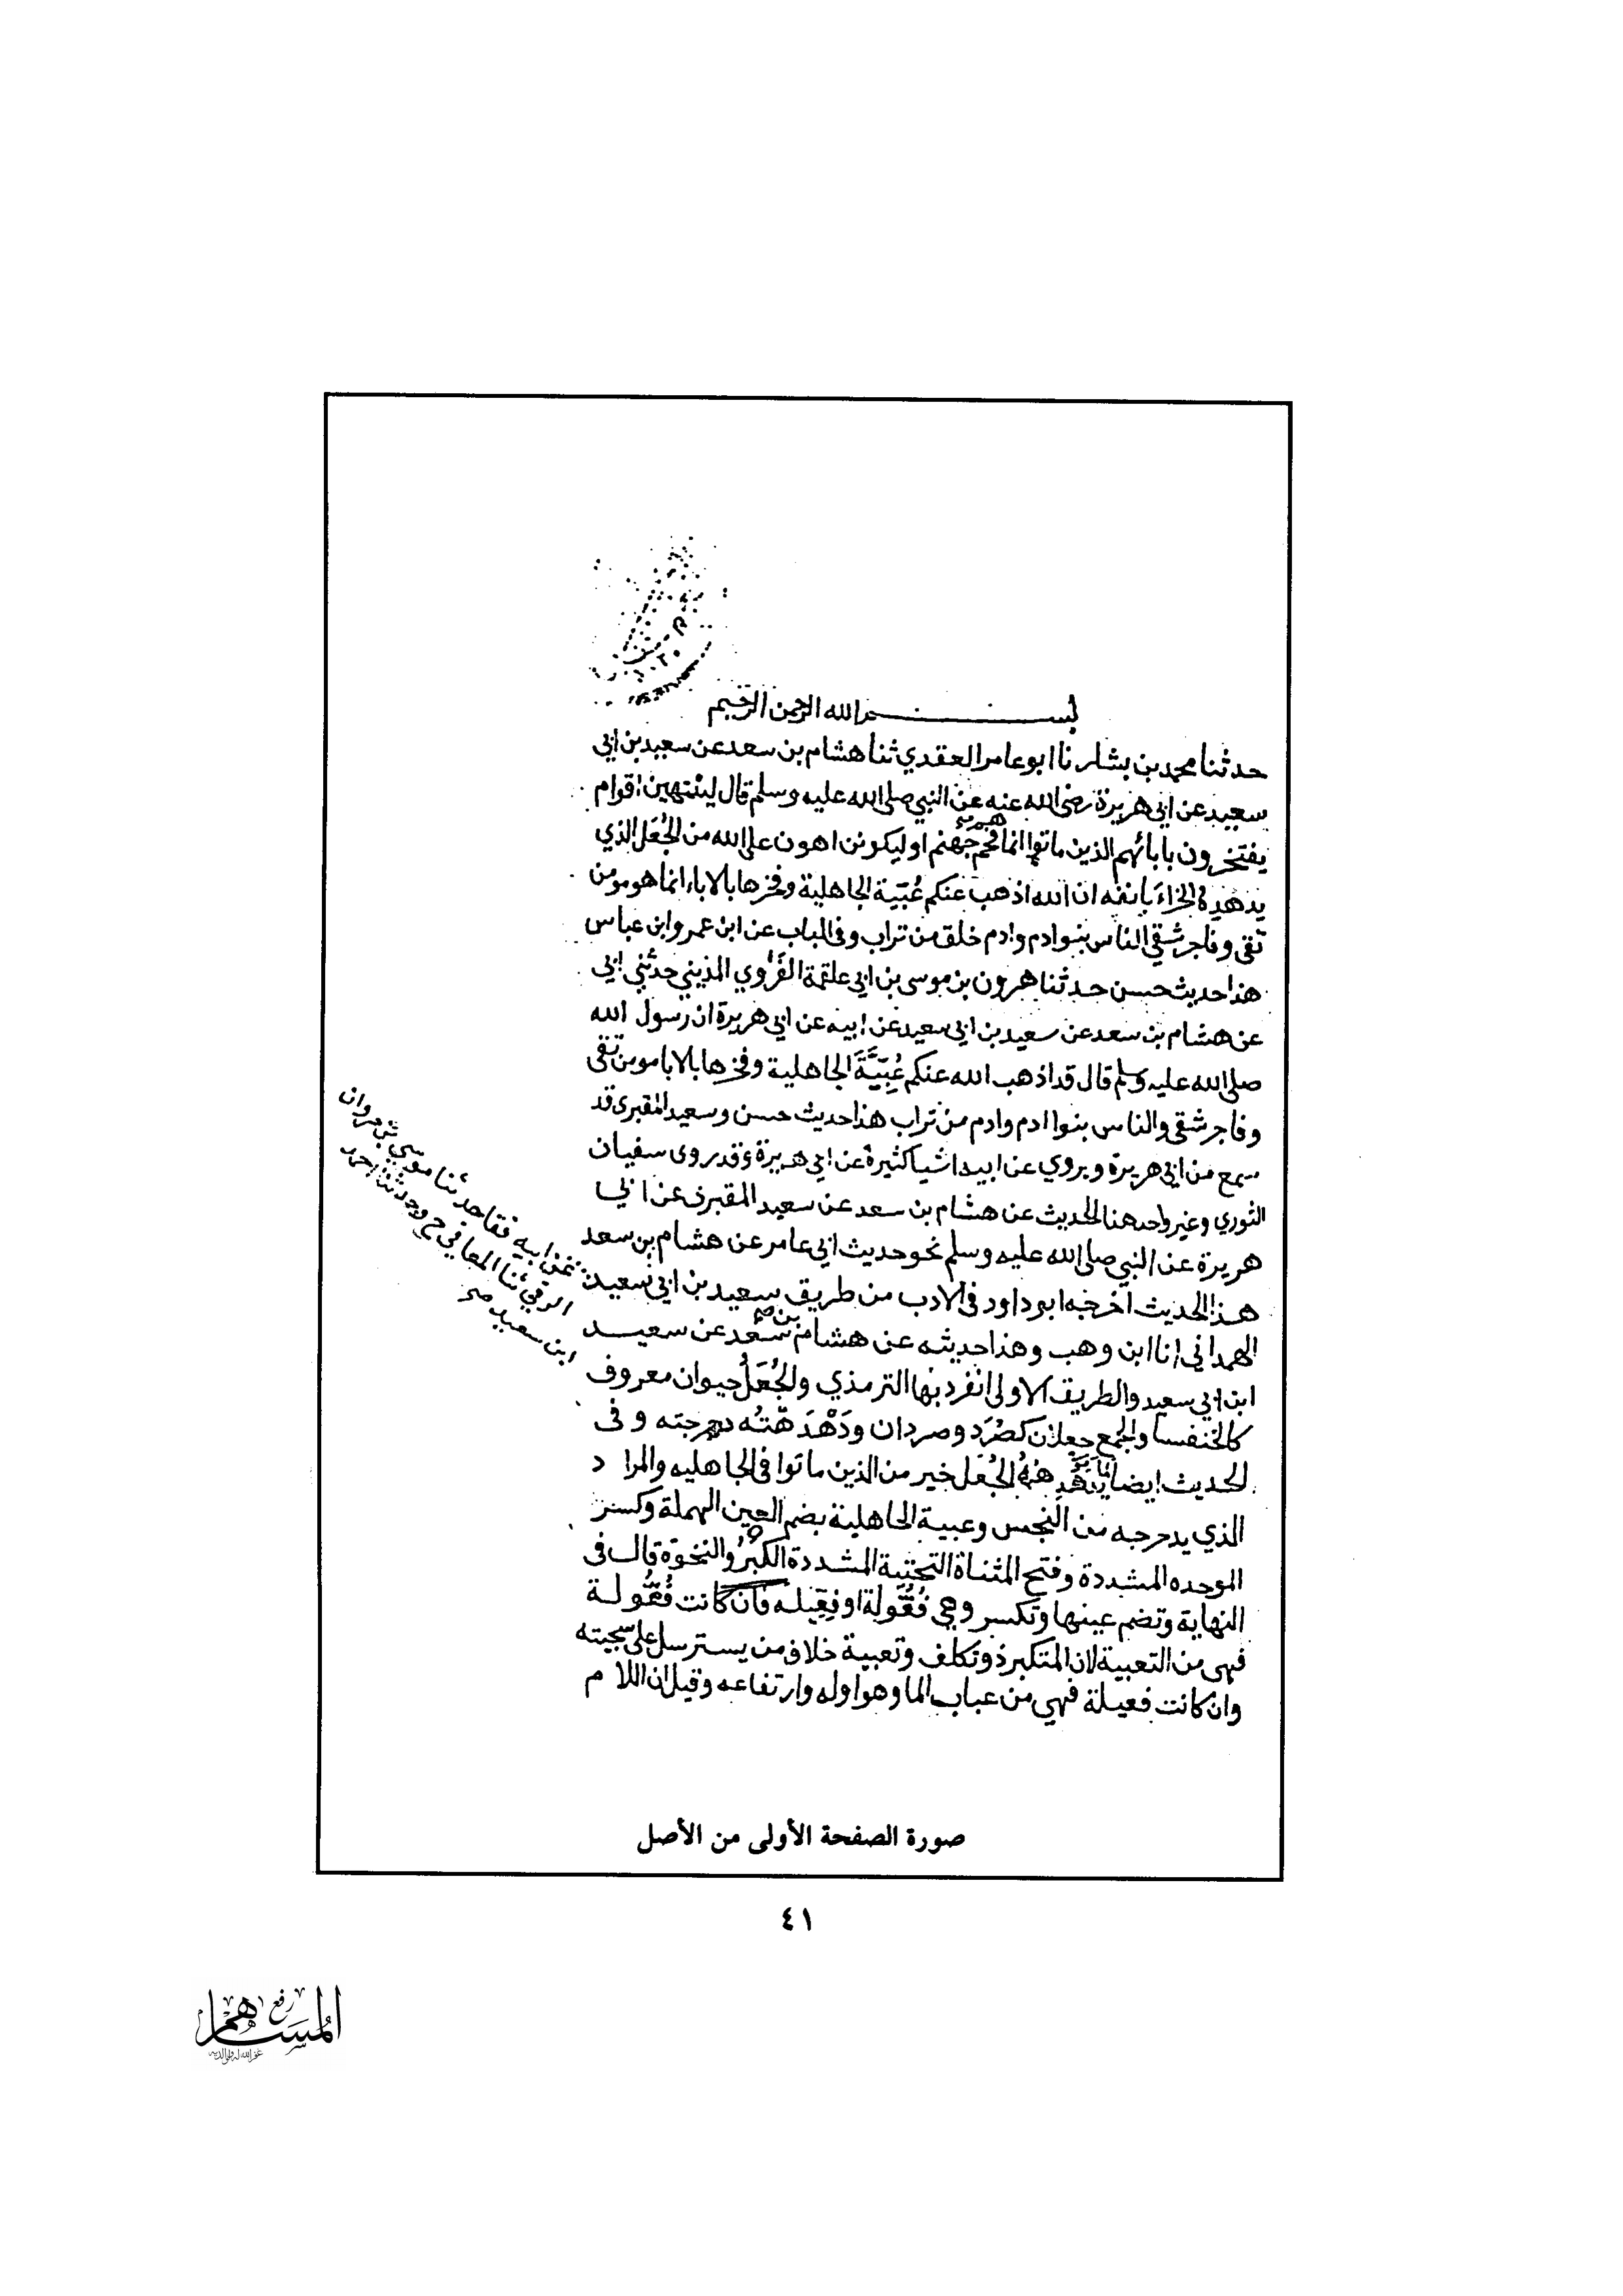 بســـــــم الله الرحمن الرحيم
حدثنا محمد بن بشار نا ابو عامر العقدي ثنا هشام بن سعد عن سعيد بن ابي
سعيد عن ابي هريرة رضى الله عنه عن النبي صلى الله عليه وسلم قال لينتهين اقوام
يفتخرون بابائهم الذين ماتوا انما هم فحم جهنم او ليكونن اهون على الله من الجُعَل الذي
يدهدهُ الخِراءَ بأنفه ان الله اذهب عنكم عُبّيّة الجاهلية وفخرها بالاباء انما هو مومن
تقى وفاجر شقي الناس بنو ادم وادم خلق من تراب وفى الباب عن ابن عمر وابن عباس
هذا حديث حسن حدثنا هرون بن موسى بن ابي علقمة الفَرْوي المديني حدثني ابي
عن هشام بن سعد عن سعيد بن ابي سعيد عن ابيه عن ابي هريرة ان رسول الله
صلى الله عليه وسلم قال قد اذهب الله عنكم عُبِّيَّةَ الجاهلية وفخرها بالابا مومن تقى
وفاجر شقى والناس بنوا ادم وادم من تراب هذا حديث حسن وسعيد المقبرى قد
سمع من ابي هريرة ويروي عن ابيه اشيا كثيرة عن ابي هريرة وقد روى سفيان
الثوري وغير واحد هذا الحديث عن هشام بن سعد عن سعيد المقبرى عن ابي
هريرة عن النبي صلى الله عليه وسلم نحو حديث ابي عامر عن هشام بن سعد
هذا الحديث اخرجه ابو داود فى الادب من طريق سعيد بن ابي سعيد
الهمداني انا ابن وهب وهذا حديثه عن هشام بن سعد عن سعيـــد
ابن ابي سعيد والطريق الاولى انفرد بها الترمذي والجُعَلُ حيوان معروف
كالخنفسا والجمع جعلان كصُرَد وصردان ودَهْدَهْتُه دحرجته وفى
الحديث ايضا لما يدهده الجُعَل خير من الذين ماتوا فى الجاهليه والمراد
الذي يدحرجه من النجس وعبية الجاهلية بضم العين المهملة وكسر
الموحده المشددة وفتح المثناة التحتية المشددة الكِبْرُ والنخوة قال فى
النهاية وتضم عينها وتكسر وهي فُعُّولَة او فِعِّيله فان كانت فُعُّولة
فهى من التعبية لان المتكبر ذو تكلف وتعبية خلاف من يسترسل على سجيته
وان كانت فعيلة فهي من عباب الما وهو اوله وارتفاعه وقيل ان اللام
عن ابيه فقا حدثنا موسى بن مروان
الرقي ثنا المعافي ح وحدثنا احمد
ابن سعيد صح
صورة الصفحة الأولى من الأصل
٤١
رفع
المساهم
غفر الله له ولوالديه